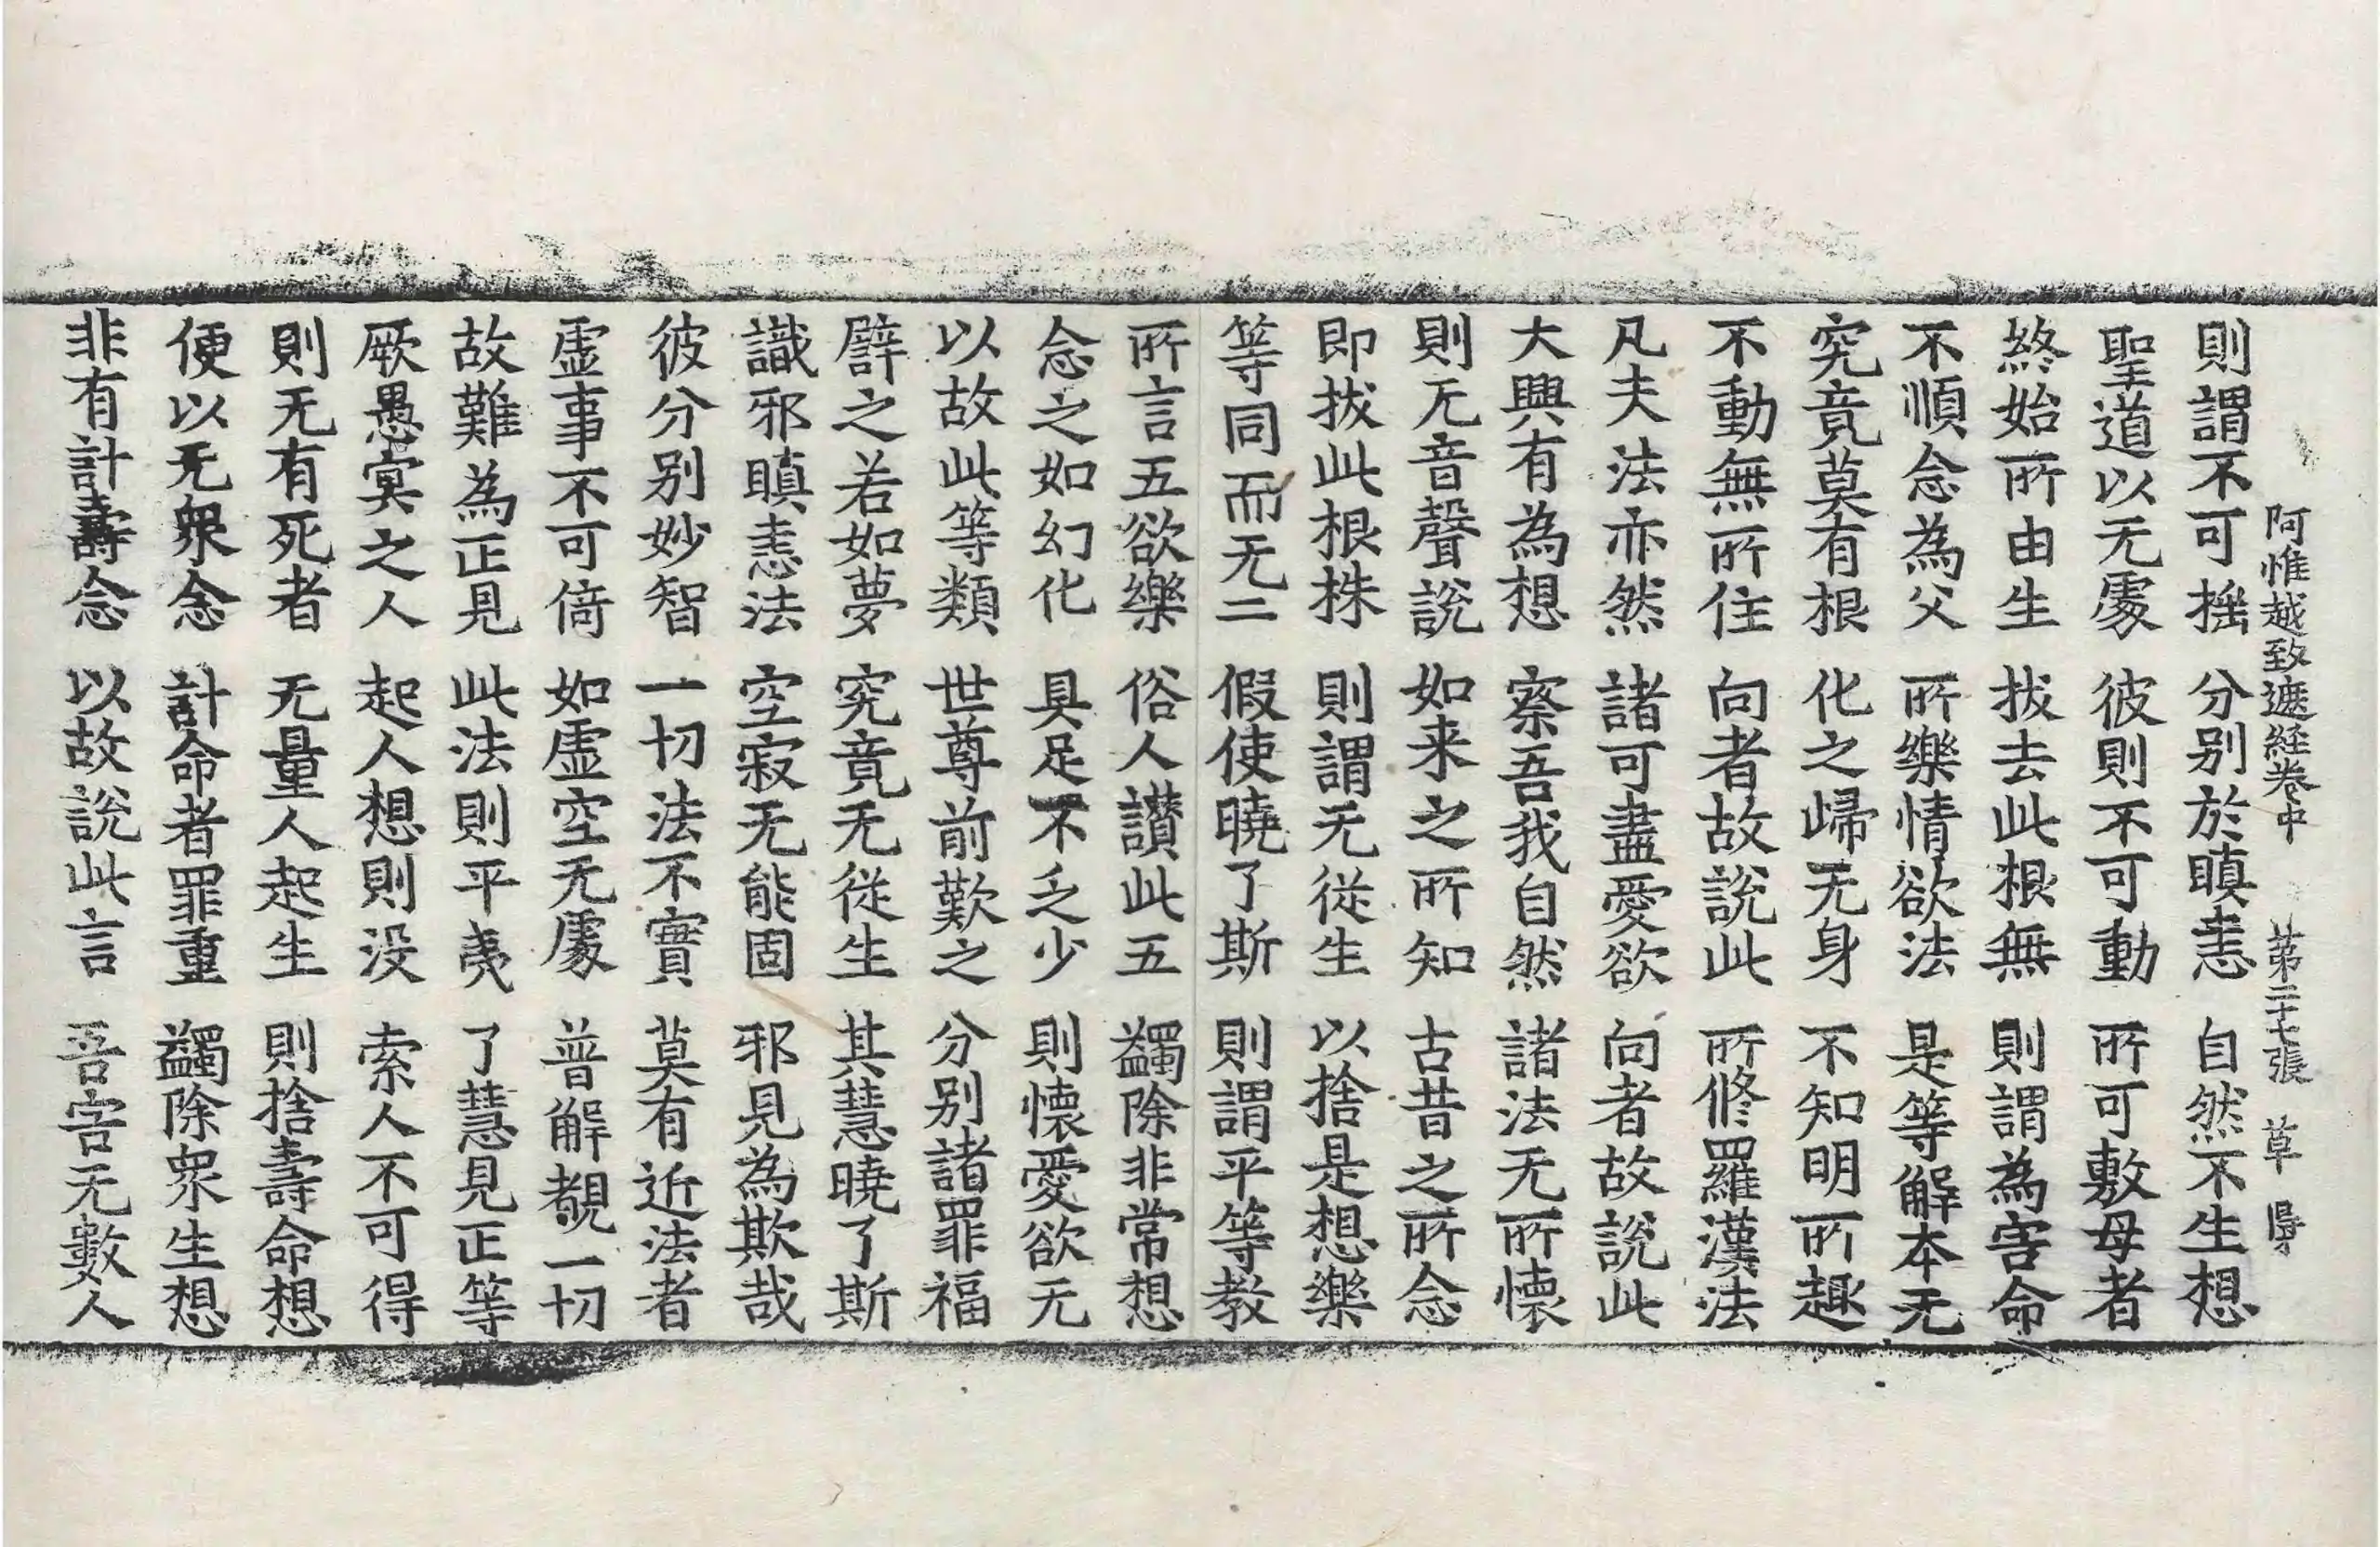 阿惟越致遮経卷中 苐二十七張 草
則謂不可揺 分别於瞋恚 自然不生想
聖道以无䖏 彼則不可動 所可敷母者
終始所由生 拔去此根無 則謂為害命
不順念為父 所樂情欲法 是等解本无
究竟莫有根 化之歸无身 不知明所趣
不動無所住 向者故說此 所修羅漢法
凡夫法亦然 諸可盡愛欲 向者故說此
大興有為想 察吾我自然 諸法无所懷
則无音聲說 如来之所知 古昔之所念
即拔此根株 則謂无從生 以捨是想樂
等同而无二 假使曉了斯 則謂平等教
所言五欲樂 俗人讃此五 蠲除非常想
念之如幻化 具足不乏少 則懷愛欲无
以故此等類 世尊前歎之 分别諸罪福
譬之若如夢 究竟无從生 其慧曉了斯
識邪瞋恚法 空寂无能固 邪見為欺哉
彼分别妙智 一切法不實 莫有近法者
虛事不可倚 如虛空无䖏 普解覩一切
故難為正見 此法則平夷 了慧見正等
厥愚冥之人 起人想則没 索人不可得
則无有死者 无量人起生 則捨壽命想
便以无衆念 計命者罪重 蠲除衆生想
非有計壽念 以故說此言 吾害无數人